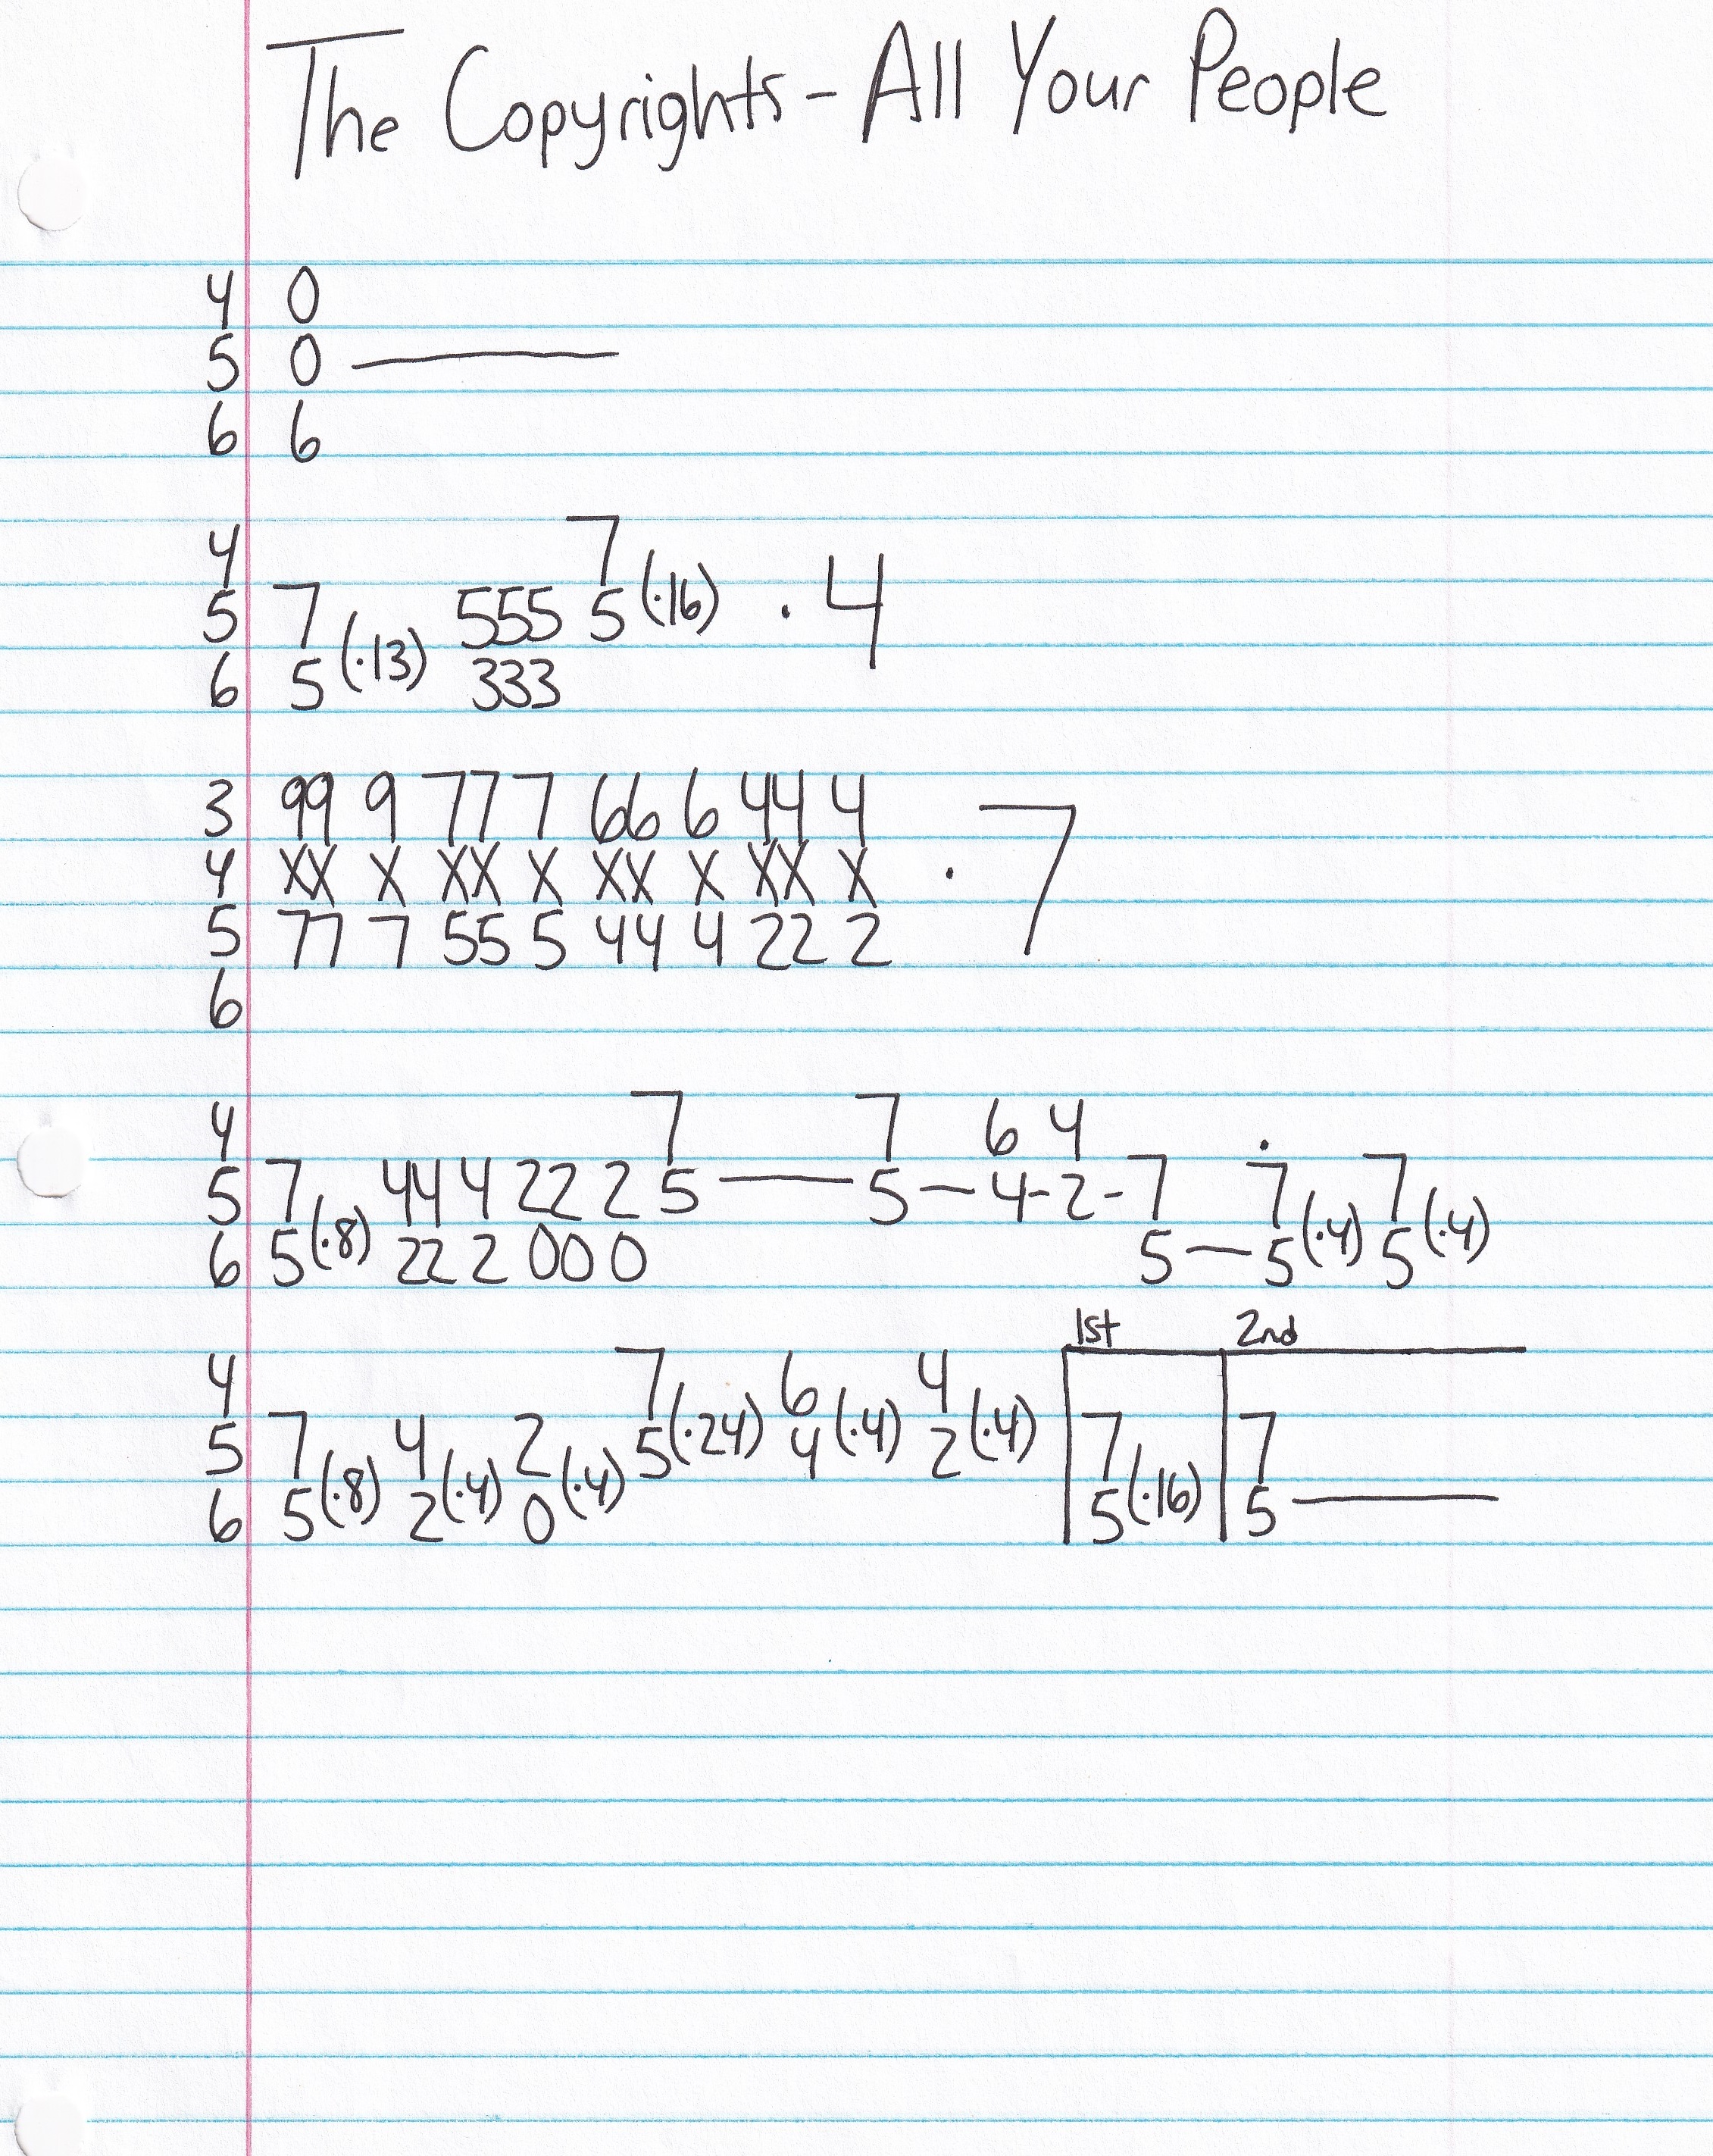 The Copyrights - All Your People
4 0
5 0 ———
6 6
4 7
5 7 555 5 (·16) · 4
6 5 (·13) 333
3 99 9 77 7 66 6 44 4
4 XX X XX X XX X XX X · 7
5 77 7 55 5 44 4 22 2
6
4 7 7 6 4 .
5 7 44 4 22 2 5 —— 5 — 4 - 2 - 7 7 7
6 5 (·8) 22 2 00 0 5 — 5 (·4) 5 (·4)
1st 2nd
4 7 6 4
5 7 4 2 5 (·24) 4 (·4) 2 (·4) 7 7
6 5 (·8) 2 (·4) 0 (·4) 5 (·16) 5 ———